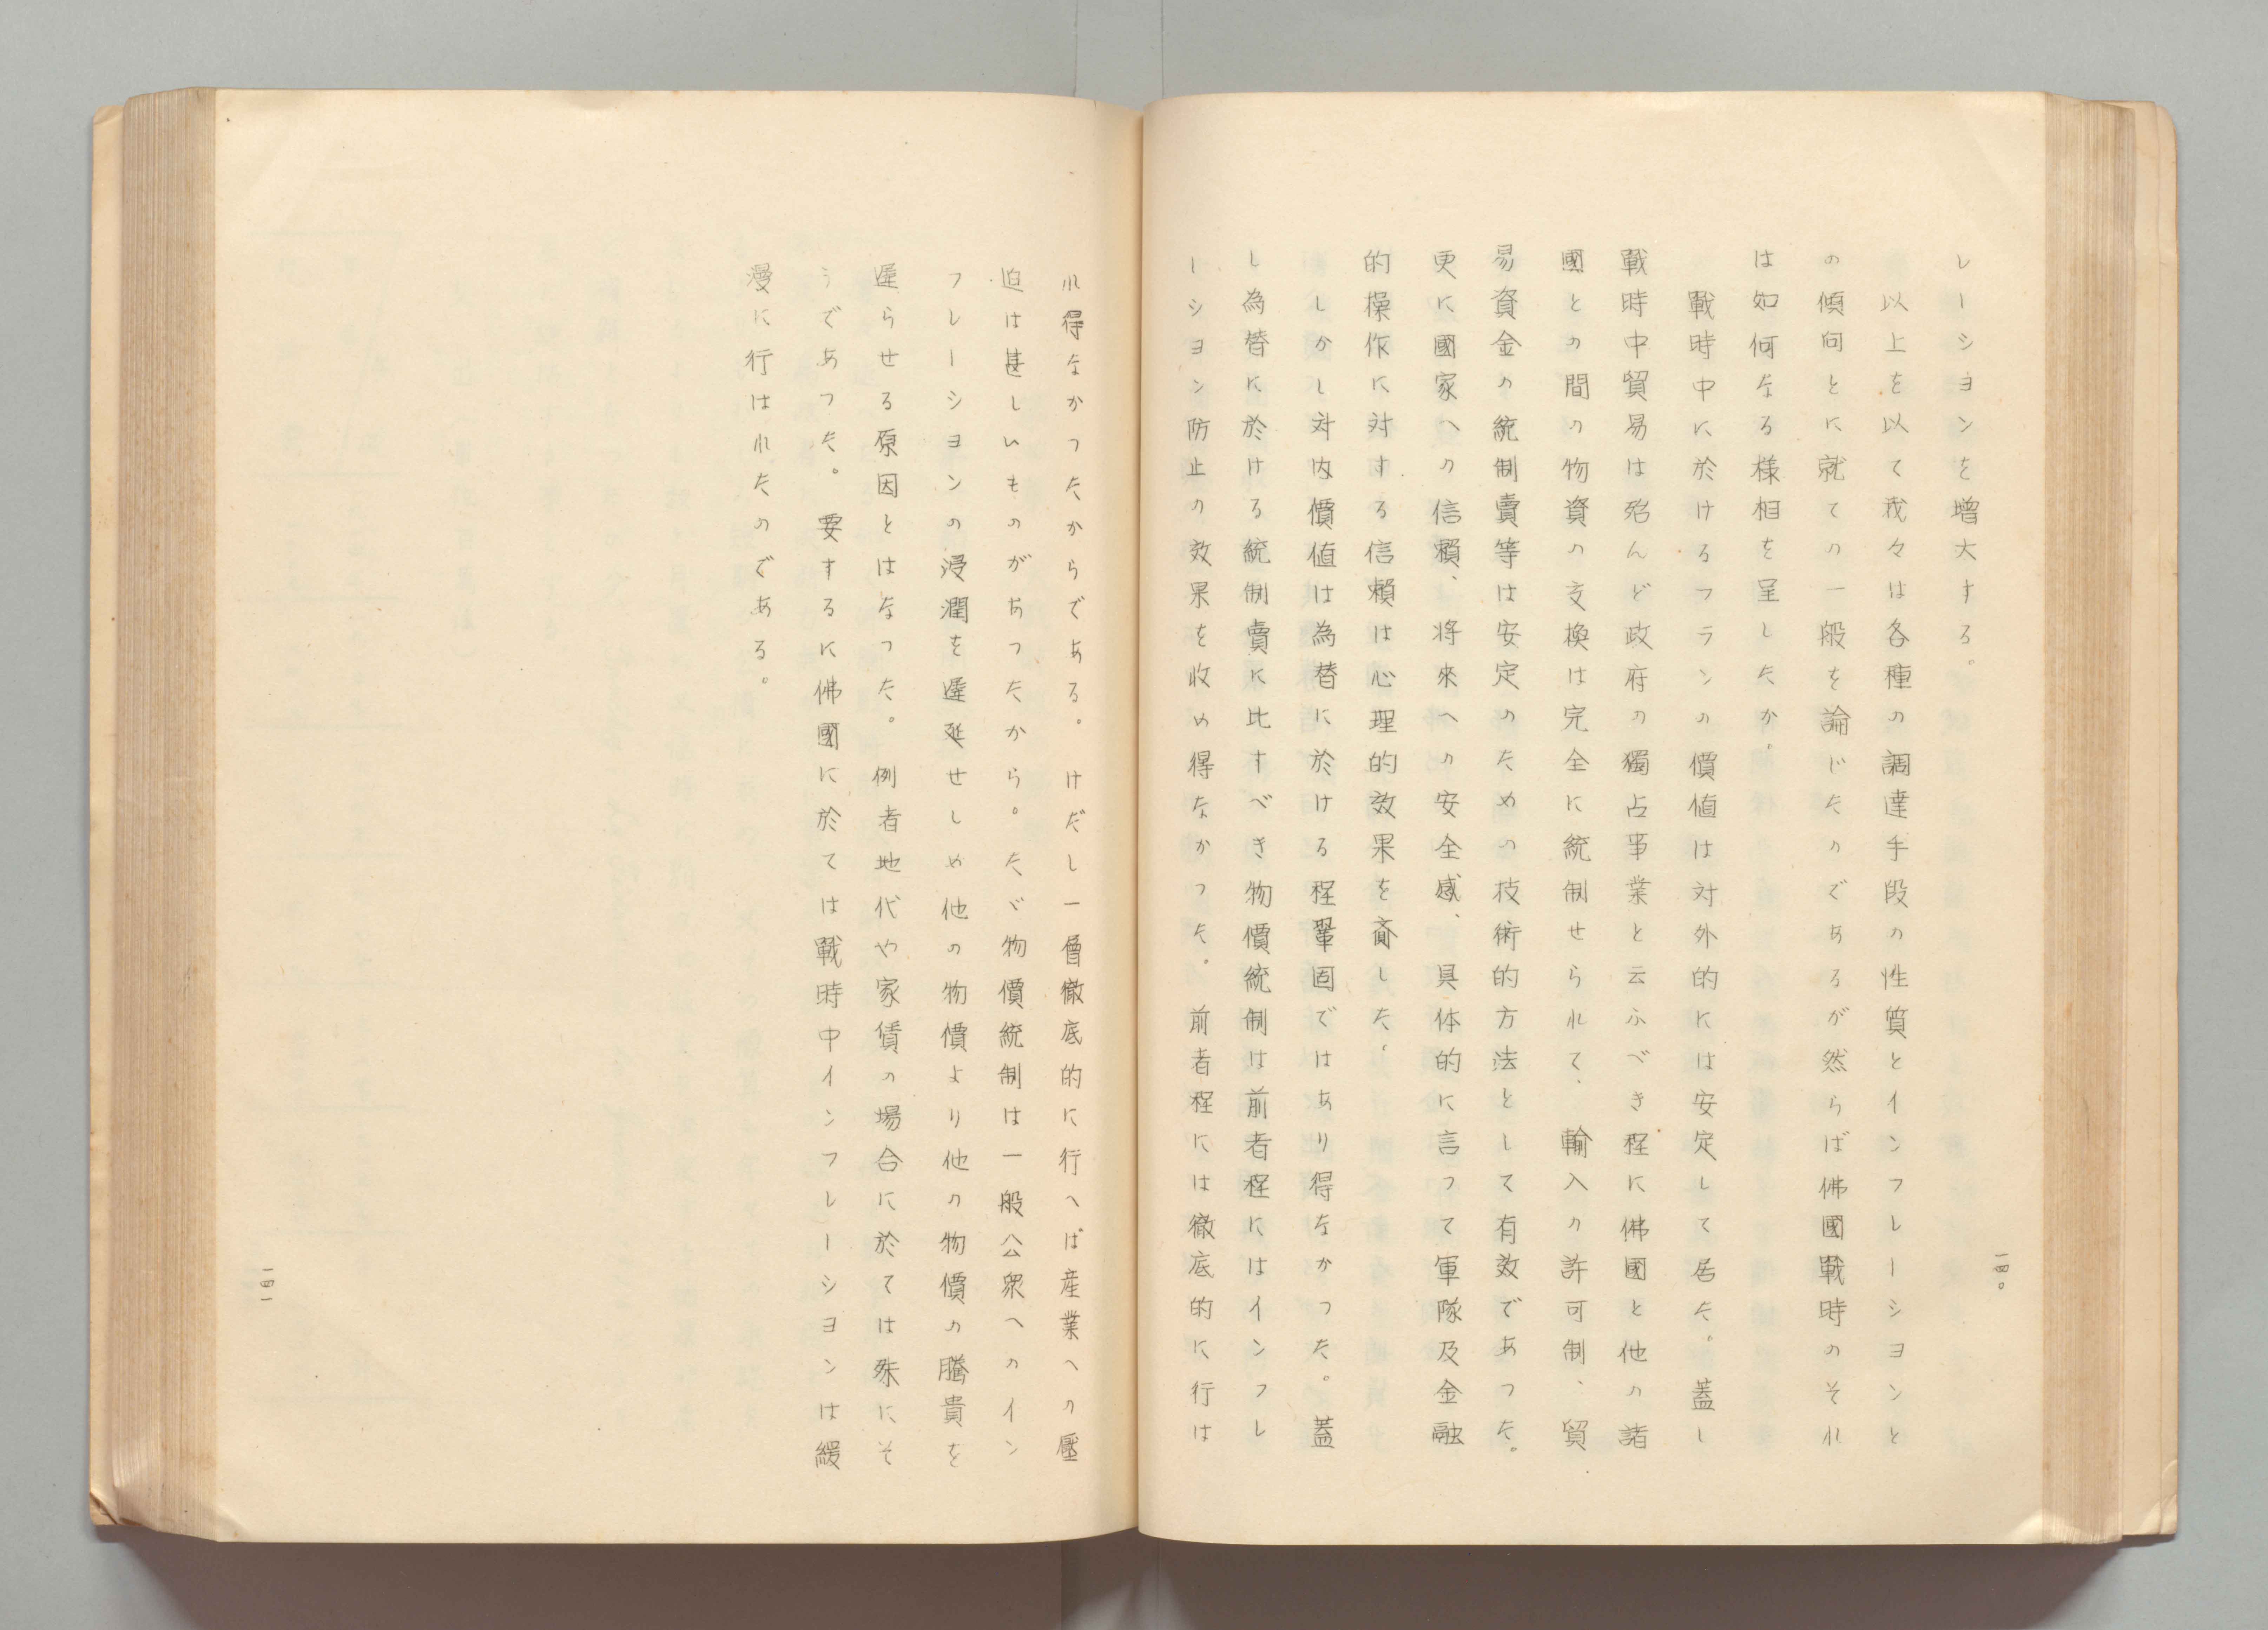 レーシヨンを增大する。
以上を以て我々は各種の調達手段の性質とインフレーシヨンと
の傾向とに就ての一般を論じたのであるが然らば佛國戰時のそれ
は如何なる様相を呈したか。
戰時中に於けるフランの價値は対外的には安定して居た。蓋し
戰時中貿易は殆んど政府の獨占事業と云ふべき程に佛國と他の諸
國との間の物資の交換は完全に統制せられて、輸入の許可制、貿
易資金の統制賣等は安定のための技術的方法として有效であつた。
更に國家への信賴、将來への安全感、具体的に言つて軍隊及金融
的操作に対する信賴は心理的效果を齎した。
しかし対内價値は為替に於ける程鞏固ではあり得なかつた。蓋
し為替に於ける統制賣に比すべき物價統制は前者程にはインフレ
ーシヨン防止の效果を收め得なかつた。前者程には徹底的に行は
一四〇
れ得なかつたからである。けだし一層徹底的に行へば産業への壓
迫は甚しいものがあつたから。たゞ物價統制は一般公衆へのイン
フレーシヨンの浸潤を遲延せしめ他の物價より他の物價の騰貴を
遲らせる原因とはなつた。例者地代や家賃の場合に於ては殊にそ
うであつた。要するに佛國に於ては戰時中インフレーシヨンは緩
漫に行はれたのである。
一四一